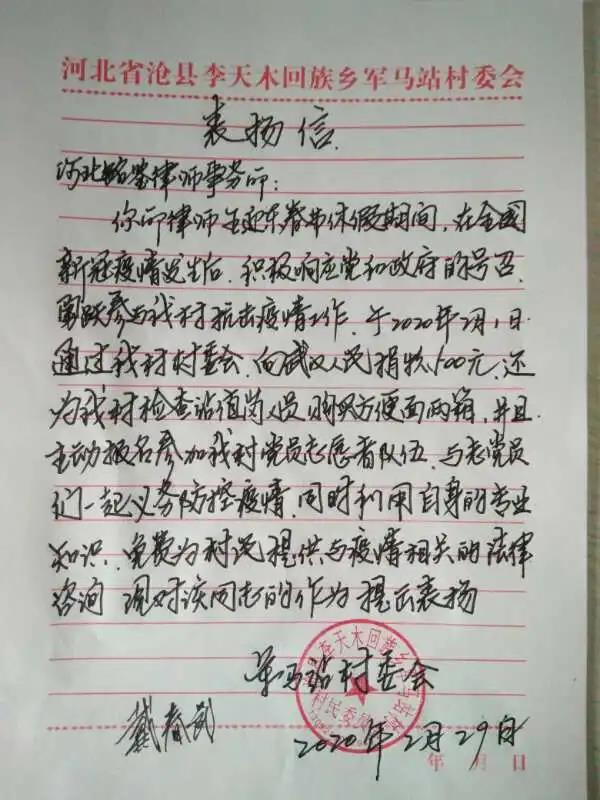 河北省沧县李天木回族乡军马站村委会
表扬信
河北 律师事务所：
你所律师王迎东春节休假期间，在全国
新冠疫情发生后，积极响应党和政府的号召，
勇跃参与我村抗击疫情工作，于2020年2月1日
通过我村村委会，向武汉人民捐款100元，还
为我村检查站值岗人员购买方便面两箱，并且
主动报名参加我村党员志愿者队伍，与老党员
们一起义务防控疫情，同时利用自身的专业
知识，免费为村民提供与疫情相关的法律
咨询 现对该同志的作为提出表扬
军马站村委会
李天木回族乡军马站村
村民委
戴春武
2020年2月29日
年 月 日